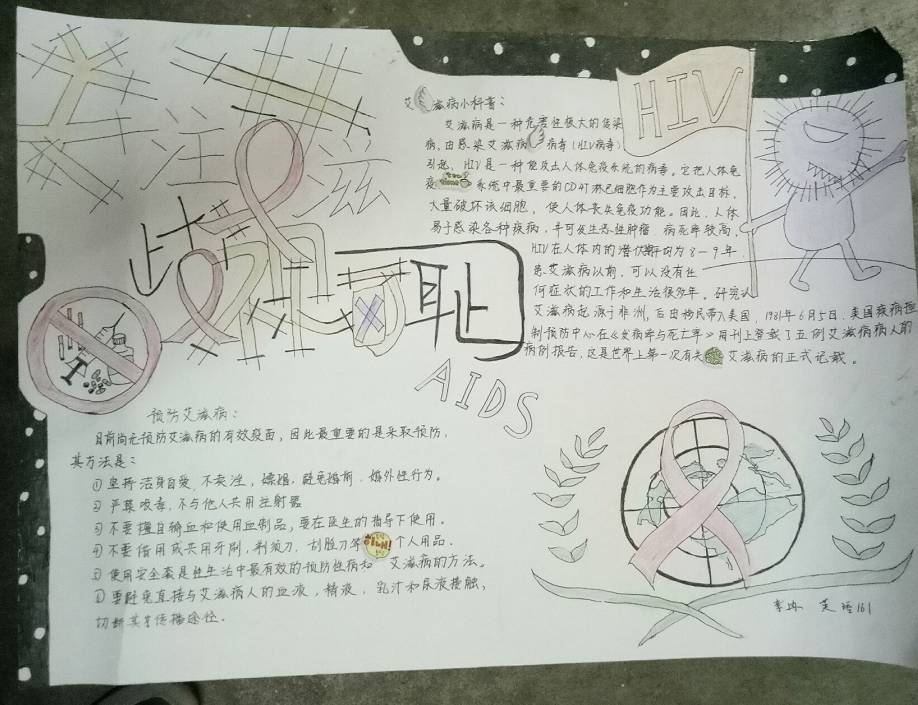 注滋
歧视可耻
AIDS
HIV
艾滋病小科普：
艾滋病是一种危害性极大的传染
病，由感染艾滋病病毒（HIV病毒）
引起，HIV是一种能攻击人体免疫系统的病毒。它把人体免
疫系统中最重要的CD4T淋巴细胞作为主要攻击目标，
大量破坏该细胞，使人体丧失免疫功能。因此，人体
易于感染各种疾病，并可发生恶性肿瘤，病死率较高，
HIV在人体内的潜伏期平均为8—9年
患艾滋病以前，可以没有任
何症状的工作和生活很多年。研究认
艾滋病起源于非洲，后由移民带入美国，1981年6月5日，美国疾病控
制预防中心在《发病率与死亡率》周刊上登载了五例艾滋病病人的
病例报告，这是世界上第一次有关艾滋病的正式记载。
预防艾滋病：
目前尚无预防艾滋病的有效疫苗，因此最重要的是采取预防，
其方法是：
①坚持洁身自爱，不卖淫，嫖娼，避免婚前、婚外性行为。
②严禁吸毒，不与他人共用注射器
③不要擅自输血和使用血制品，要在医生的指导下使用。
④不要借用或共用牙刷，剃须刀，刮脸刀等个人用品。
⑤使用安全套是性生活中最有效的预防性病和艾滋病的方法。
⑥要避免直接与艾滋病人的血液，精液，乳汁和尿液接触，
切断其传播途径。
161